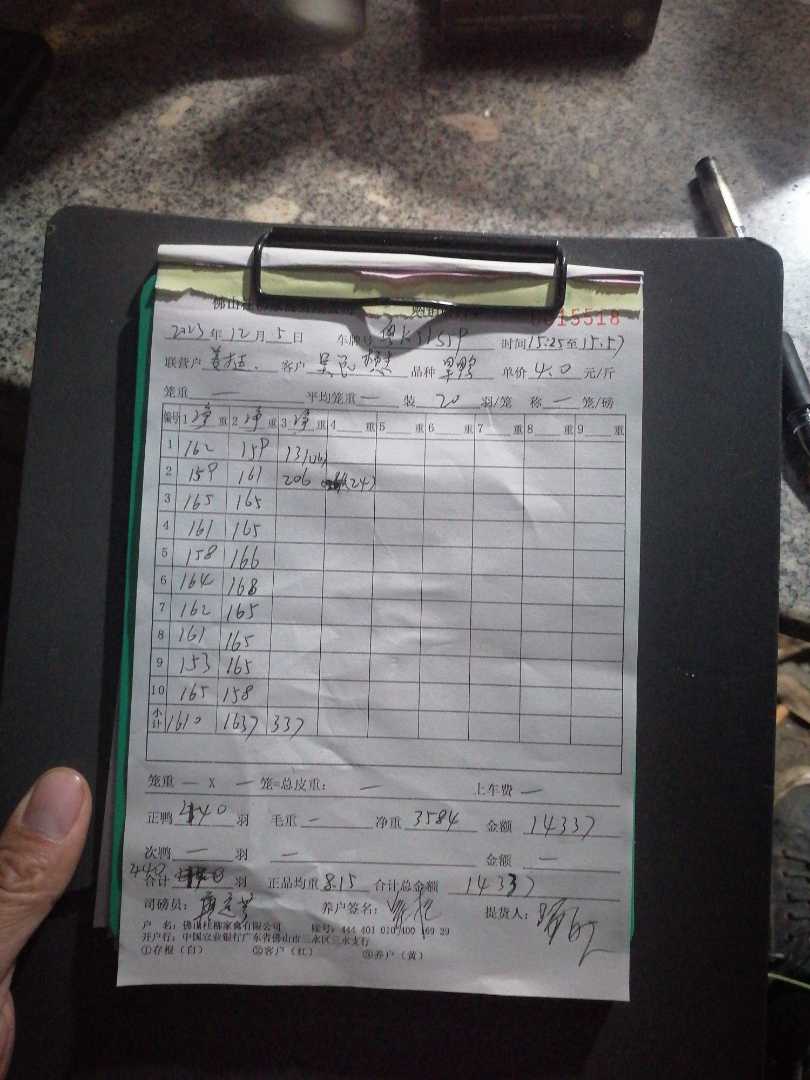 佛山
15518
2023年12月5日 车牌号 时间15:25至15:57
联营户 客户 吴 品种 单价4.0元/斤
笼重 — 平均笼重 — 装 20 羽/笼 称 — 笼/磅
编号 1净重 2净重 3净重 4 重 5 重 6 重 7 重 8 重 9 重
1 162 159 131
2 159 161 206 (24)
3 165 165
4 161 165
5 158 166
6 164 168
7 162 165
8 161 165
9 153 165
10 165 158
小计 1610 1637 337
笼重 — X — 笼=总皮重: — 上车费 —
正鸭 440 羽 毛重 — 净重 3584 金额 14337
次鸭 — 羽 — 金额 —
合计 440 羽 正品均重 8.15 合计总金额 14337
司磅员: 养户签名: 提货人:
户 名:佛山桂柳家禽有限公司 账号:444 401 010 400 169 29
开户行:中国农业银行广东省佛山市三水区三水支行
①存根(白) ②客户(红) ③养户(黄)